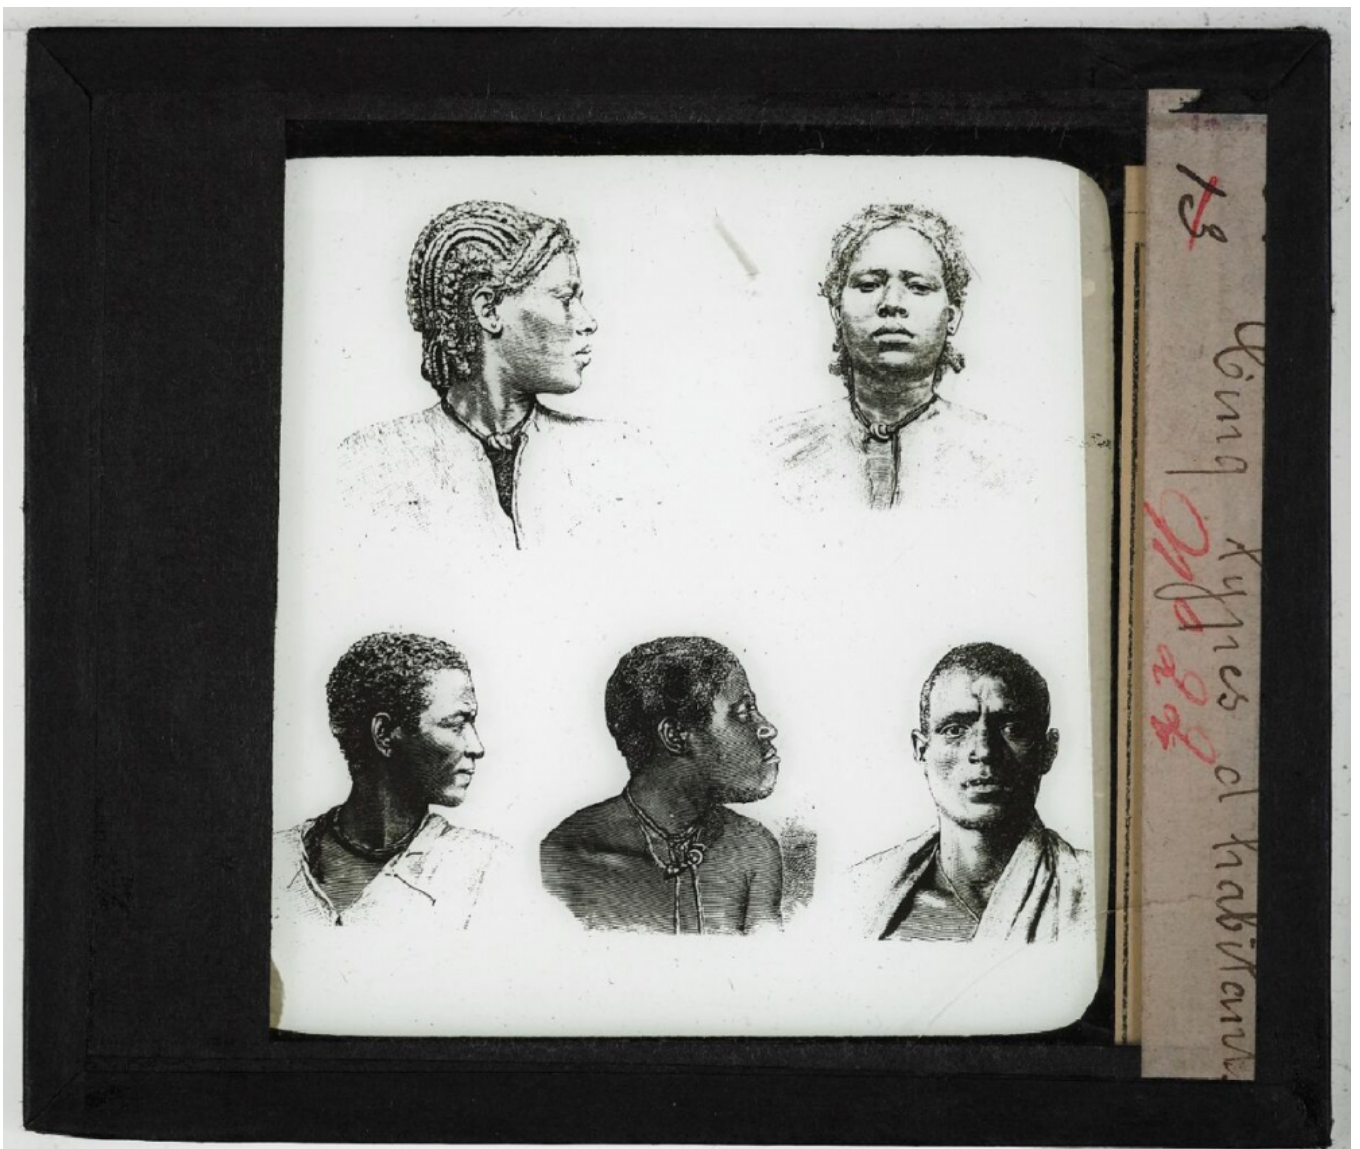 13
Cinq types d'habitants